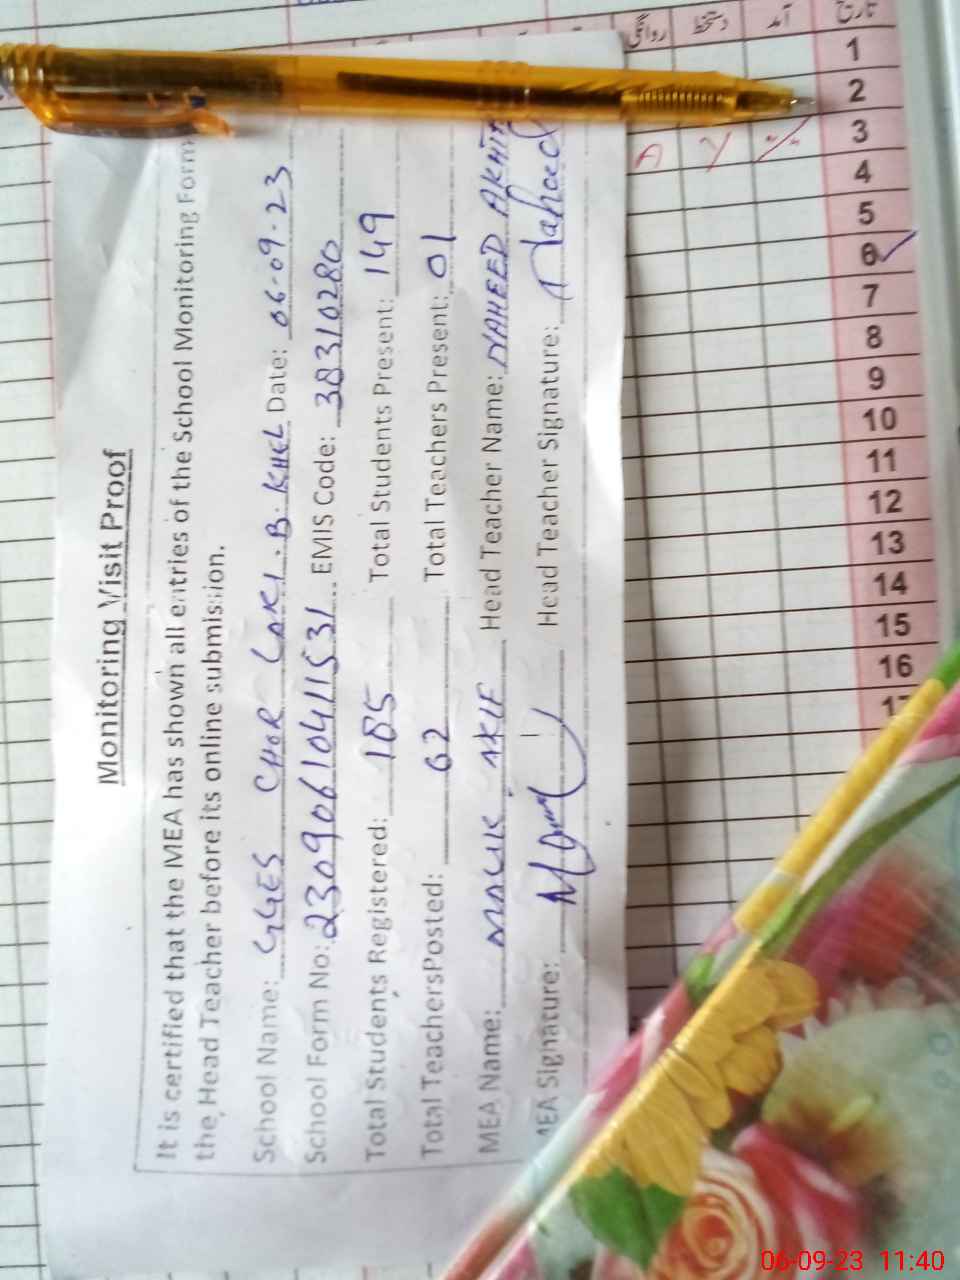 Monitoring Visit Proof
It is certified that the MEA has shown all entries of the School Monitoring Form
the Head Teacher before its online submission.
School Name: GGES CHOR LAKI. B. KHEL Date: 06-09-23
School Form No: 23090610411531 EMIS Code: 38310280
Total Students Registered: 185 Total Students Present: 149
Total TeachersPosted: 02 Total Teachers Present: 01
MEA Name: MALIK AKIF Head Teacher Name: NAHEED AKHTR
MEA Signature: Head Teacher Signature: Naheed
تاریخ آمد دستخط روانگی
1
2
3
4
5
6
7
8
9
10
11
12
13
14
15
16
17
06-09-23 11:40